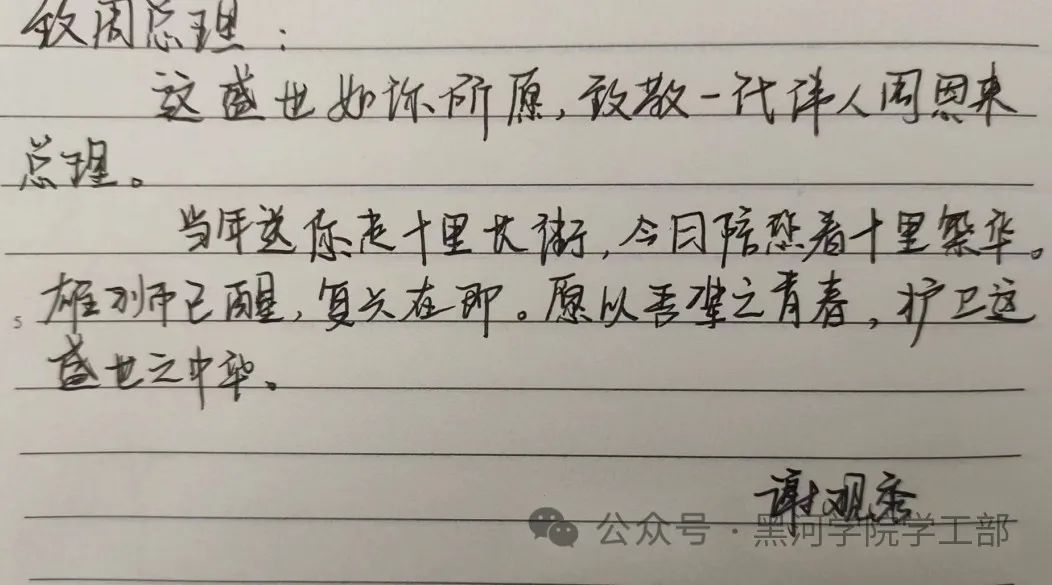 致周总理：
这盛世如你所愿，致敬一代伟人周恩来
总理。
当年送你走十里长街，今日陪您看十里繁华。
雄狮已醒，复兴在即。愿以吾辈之青春，护卫这
5
盛世之中华。
谢观秀
公众号·黑河学院学工部